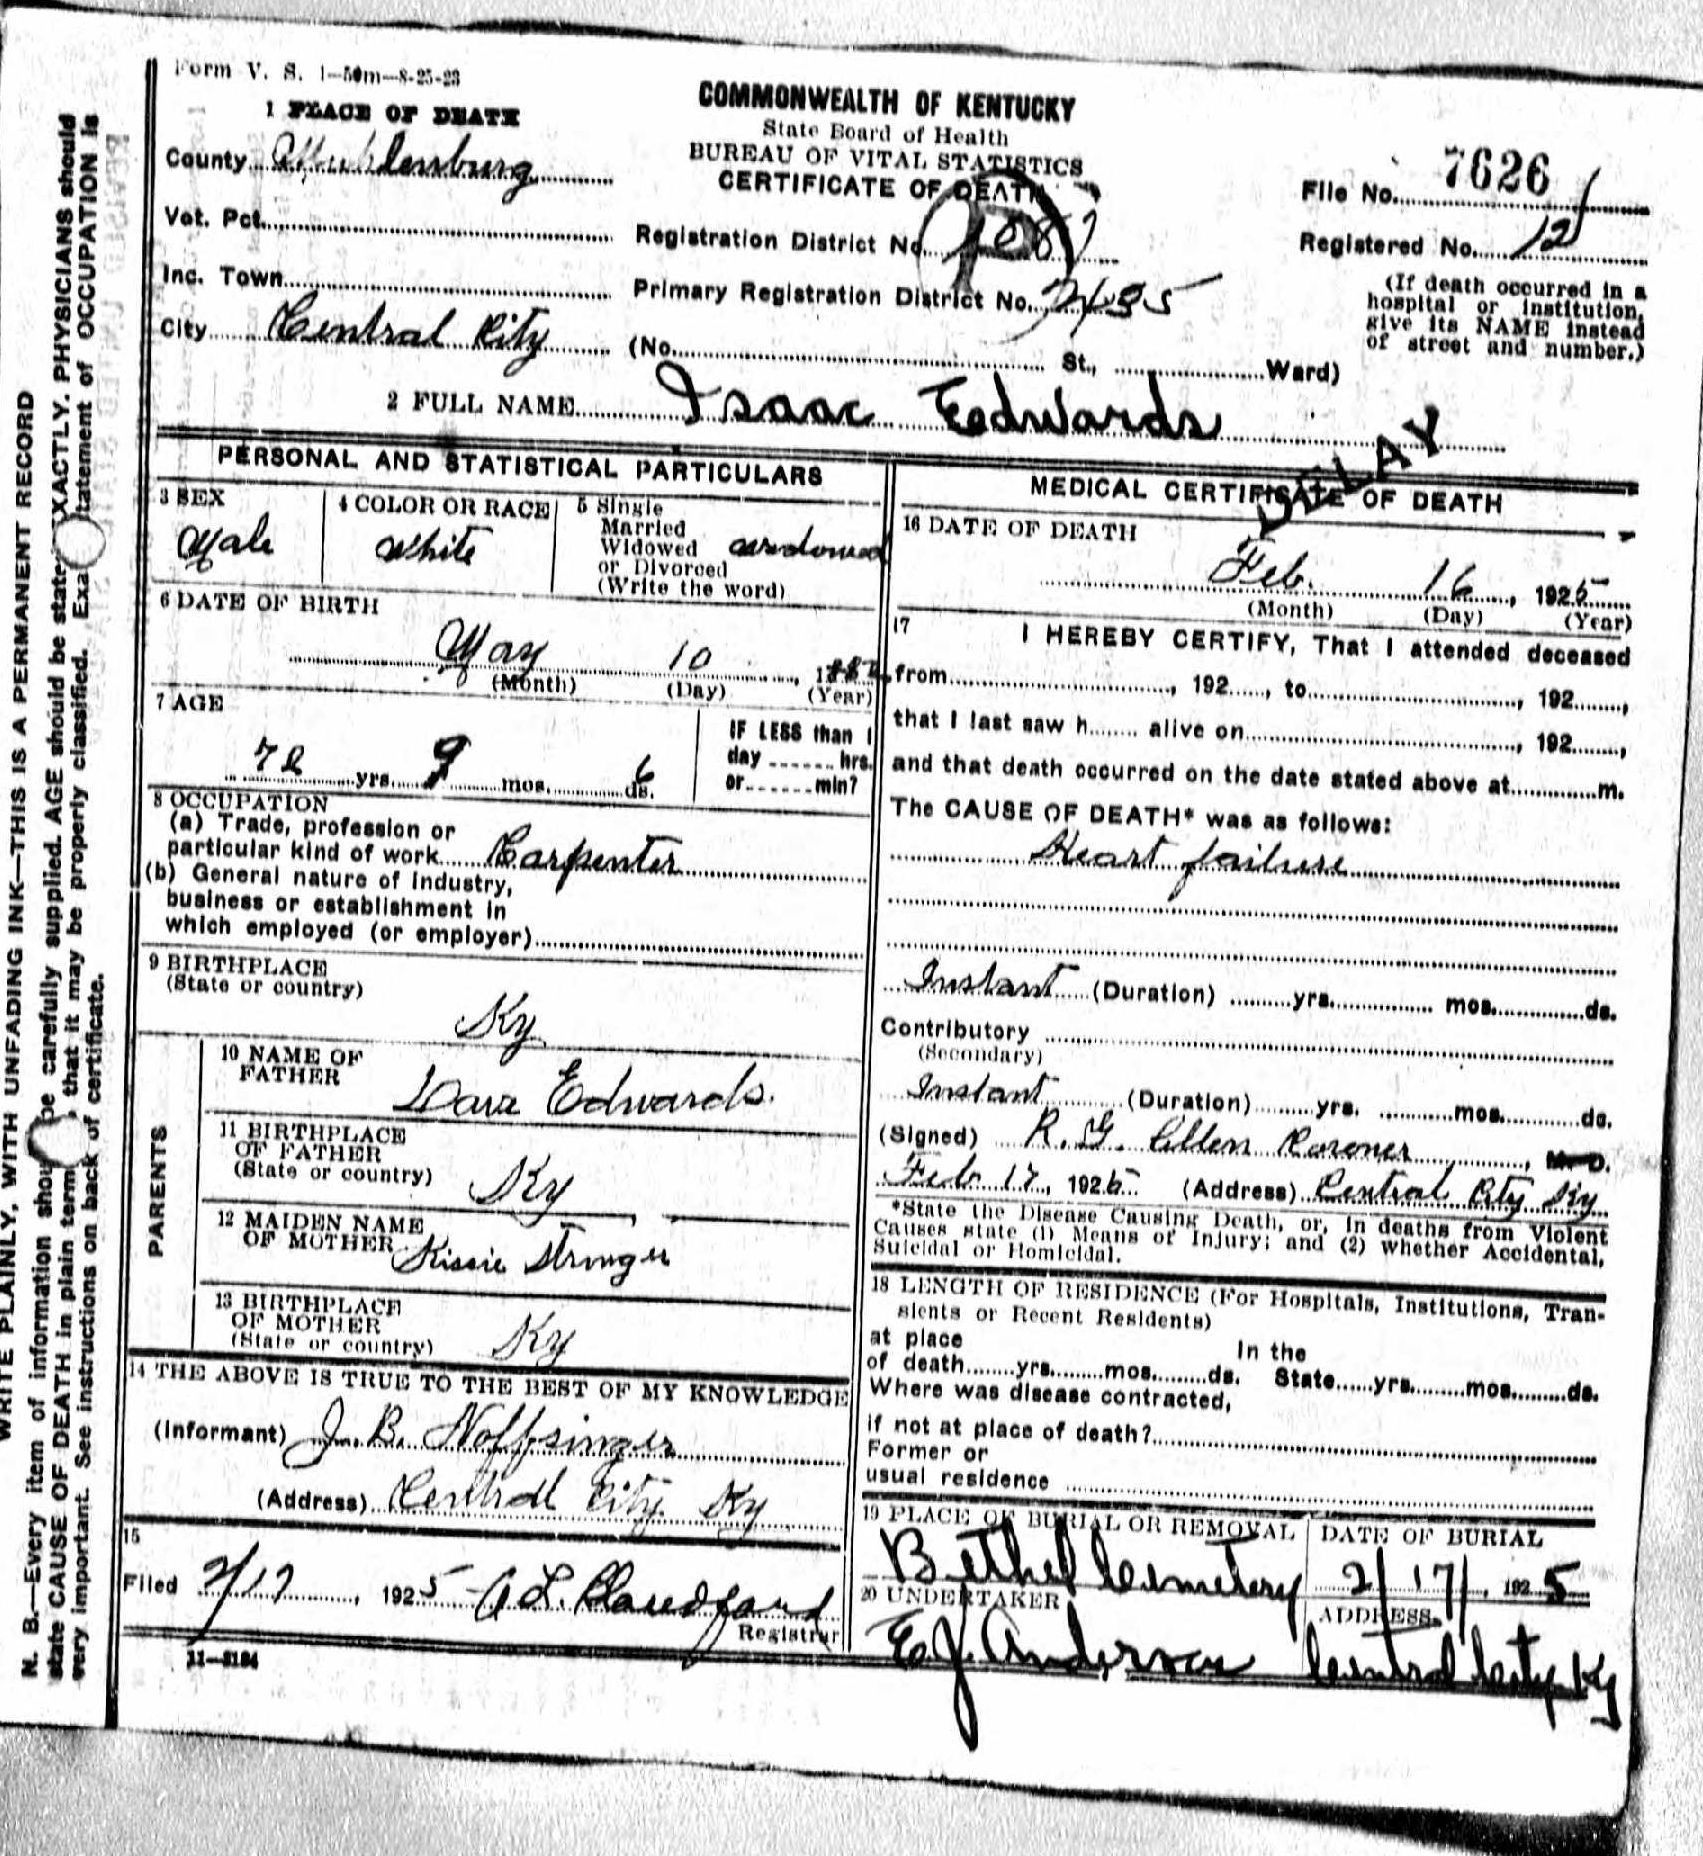 Form V. S. 1-50m-8-25-23
COMMONWEALTH OF KENTUCKY
State Board of Health
BUREAU OF VITAL STATISTICS
CERTIFICATE OF DEATH
1 PLACE OF DEATH
County Muhlenburg
Vot. Pct.
Inc. Town
City Central City
File No. 7626
Registered No. 12
Registration District No. 1087
Primary Registration District No. 7435
(No. St., Ward)
(If death occurred in a
hospital or institution,
give its NAME instead
of street and number.)
2 FULL NAME Isaac Edwards
DELAY
PERSONAL AND STATISTICAL PARTICULARS
3 SEX
Male
4 COLOR OR RACE
White
5 Single
Married
Widowed widowed
or Divorced
(Write the word)
6 DATE OF BIRTH
May 10, 1852
(Month) (Day) (Year)
7 AGE
72 yrs. 9 mos. 6 ds.
IF LESS than 1
day hrs.
or min?
8 OCCUPATION
(a) Trade, profession or
particular kind of work Carpenter
(b) General nature of industry,
business or establishment in
which employed (or employer)
9 BIRTHPLACE
(State or country)
Ky
PARENTS
10 NAME OF
FATHER Edwards.
11 BIRTHPLACE
OF FATHER
(State or country) Ky
12 MAIDEN NAME
OF MOTHER Kissie Stringer
13 BIRTHPLACE
OF MOTHER
(State or country) Ky
14 THE ABOVE IS TRUE TO THE BEST OF MY KNOWLEDGE
(Informant) J. B. Noffsinger
(Address) Central City Ky
15
Filed 2/17, 1925
Registrar
11-3184
MEDICAL CERTIFICATE OF DEATH
16 DATE OF DEATH
Feb. 16, 1925
(Month) (Day) (Year)
17 I HEREBY CERTIFY, That I attended deceased
from , 192 , to , 192 ,
that I last saw h alive on , 192 ,
and that death occurred on the date stated above at m.
The CAUSE OF DEATH* was as follows:
Heart failure
Instant (Duration) yrs. mos. ds.
Contributory
(Secondary)
Instant (Duration) yrs. mos. ds.
(Signed) R. G. Coroner, M. D.
Feb 17, 1925 (Address) Central City Ky
*State the Disease Causing Death, or, in deaths from Violent
Causes state (1) Means of Injury; and (2) whether Accidental,
Suicidal or Homicidal.
18 LENGTH OF RESIDENCE (For Hospitals, Institutions, Tran-
sients or Recent Residents)
at place In the
of death yrs. mos. ds. State yrs. mos. ds.
Where was disease contracted,
if not at place of death?
Former or
usual residence
19 PLACE OF BURIAL OR REMOVAL
Bethel Cemetery
DATE OF BURIAL
2/17/, 1925
20 UNDERTAKER
E J. Anderson
ADDRESS
Central City Ky
WRITE PLAINLY, WITH UNFADING INK—THIS IS A PERMANENT RECORD
N. B.—Every item of information should be carefully supplied. AGE should be stated EXACTLY. PHYSICIANS should
state CAUSE OF DEATH in plain terms, that it may be properly classified. Exact statement of OCCUPATION is
very important. See instructions on back of certificate.